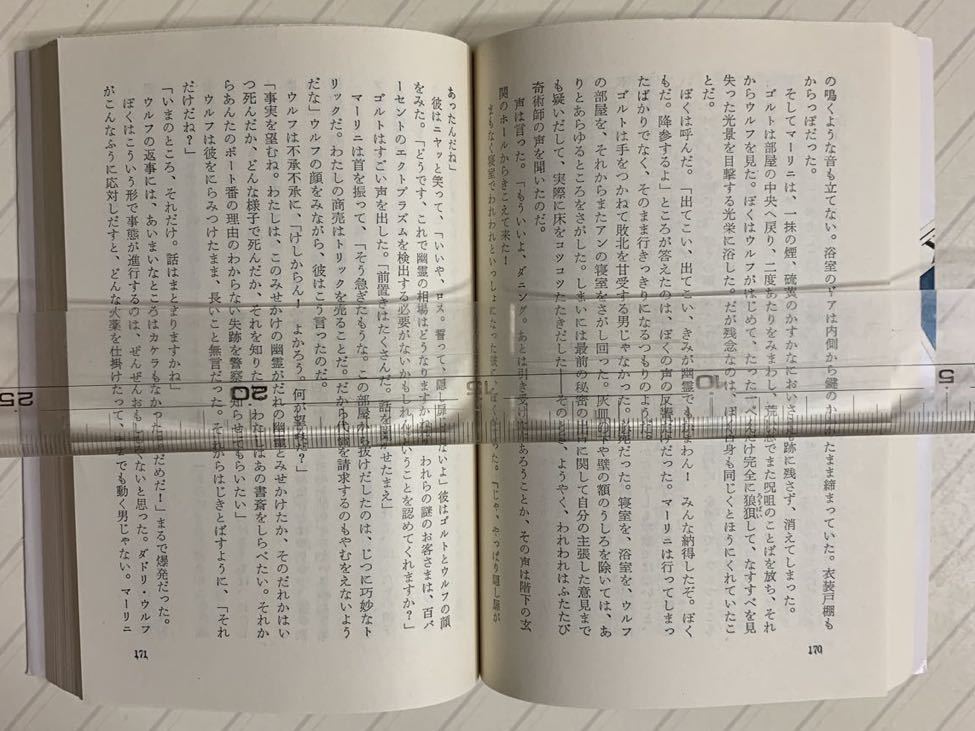 の鳴くような音も立てない。浴室のドアは内側から鍵のかかったまま締まっていた。衣装戸棚も
からっぽだった。
そしてマーリニは、一抹の煙、硫黄のかすかなにおいさえも跡に残さず、消えてしまった。
ゴルトは部屋の中央へ戻り、二度あたりをみまわし、また呪咀のことばを放ち、それ
からウルフを見た。ぼくはウルフがはじめて、たった一ぺんだけ完全に狼狽して、なすすべを見
失った光景を目撃する光栄に浴した。だが残念なのは、ぼく自身も同じくとほうにくれていたこ
とだ。
ぼくは呼んだ。「出てこい、出てこい、きみが幽霊でもかまわん！　みんな納得したぞ。ぼく
もだ。降参するよ」ところが答えたのは、ぼくの声の反響だけだった。マーリニは行ってしまっ
たばかりでなく、そのまま行きっきりになるつもりのようだ
ゴルトは手をつかねて敗北を甘受する男じゃなかった。だった。寝室を、浴室を、ウルフ
の部屋を、それからまたアンの寝室をさがし回った。灰皿の下や壁の額のうしろを除いては、あ
りとあらゆるところをさがした。しまいには最前の秘密の出口に関して自分の主張した意見まで
も疑いだして、実際に床をコツコツたたきだした――そのとき、ようやく、われわれはふたたび
奇術師の声を聞いたのだ。
声は言った。「もういい、ダニング。あとは引き受けたあろうことか、その声は階下の玄
関のホールからきこえて来た！
まもなく寝室でわれわれといっしょになった彼に、ぼくは言った。「じゃ、やっぱり隠し扉が
170
あったんだね」
彼はニヤッと笑って、「いいや、ロス。誓って、隠し扉はないよ」彼はゴルトとウルフの顔
をみた。「どうです、これで幽霊の相場はどうなりますかね。われらの謎のお客さまは、百パ
ーセントのエクトプラズムを検出する必要がないかもしれんということを認めてくれますか？」
ゴルトはすごい声を出した。「前置きはたくさんだ。話を聞かせたまえ」
マーリニは首を振って、「そう急ぎたもうな。この部屋から抜けだしたのは、じつに巧妙なト
リックだ。わたしの商売はトリックを売ることだ。だから代価を請求するのもやむをえないよう
だな」ウルフの顔をみながら、彼はこう言ったのだ。
ウルフは不承不承に、「けしからん！　よかろう。何が望みだ？」
「事実を望むね。わたしは、このみせかけの幽霊がだれの幽霊とみせかけたか、そのだれかはい
つ死んだか、どんな様子で死んだか、それを知りたい。わたしはあの書斎をしらべたい。それか
らあんたのボート番の理由のわからない失跡を警察に知らせてもらいたい」
ウルフは彼をにらみつけたまま、長いこと無言だった。それからはじきとばすように、「それ
だけだね？」
「いまのところ、それだけ。話はまとまりますかね」
ウルフの返事には、あいまいなところはカケラもなかった「だめだ！」まるで爆発だった。
ぼくはこういう形で事態が進行するのは、ぜんぜんおもしろくないと思った。ダドリ・ウルフ
がこんなふうに応対しだすと、どんな火薬を仕掛けたって、でも動く男じゃない。マーリニ
171
5
10
15
20
25